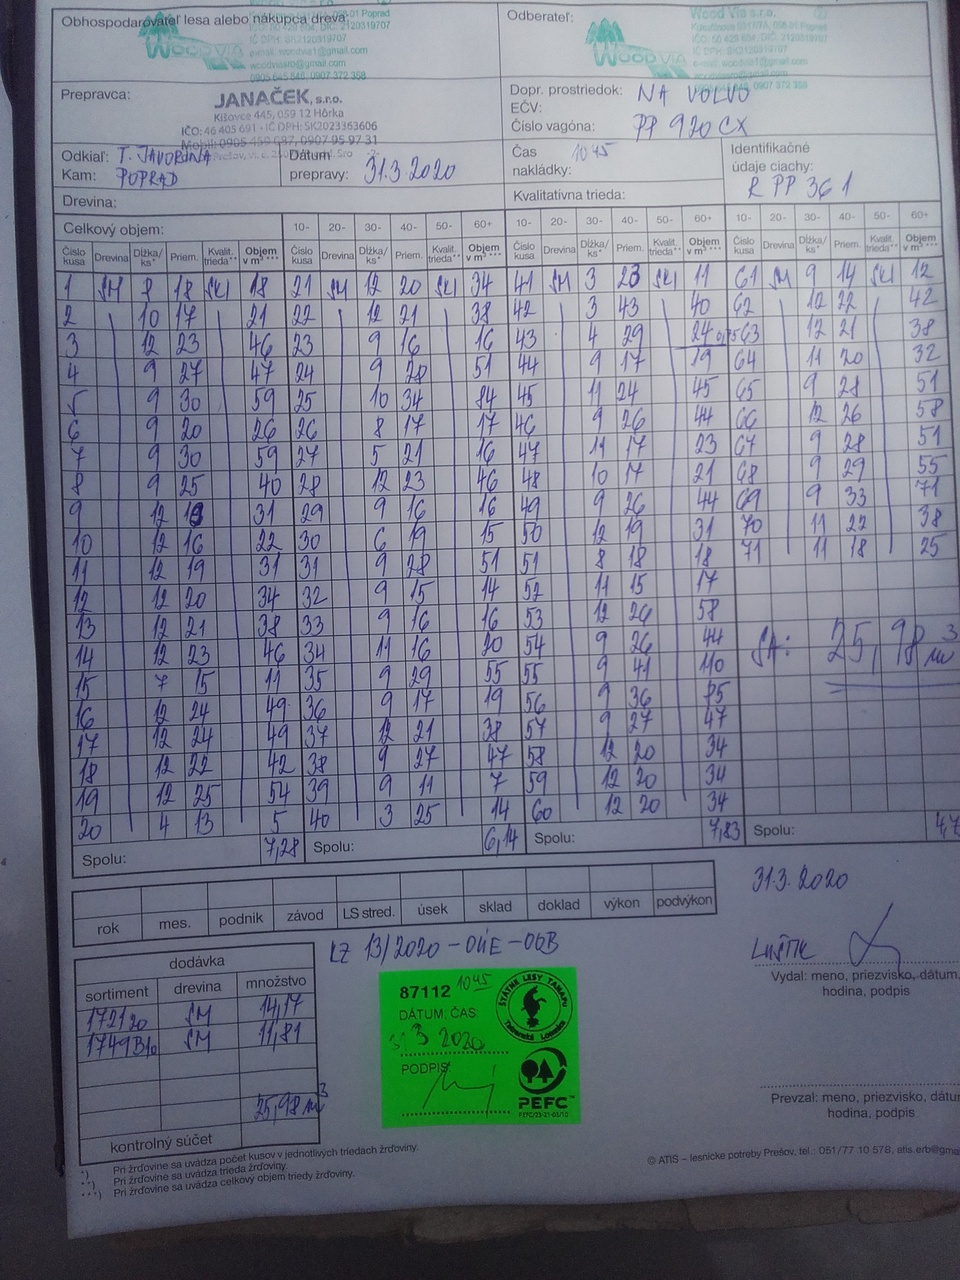 Obhospodarovateľ lesa alebo nákupca dreva:
WOOD VIA
IČ DPH: SK2120319707
e-mail: woodvia1@gmail.com
woodviasro@gmail.com
0905 645 848, 0907 372 358
Odberateľ:
Wood Via s.r.o.
WOOD VIA
Prepravca:
JANAČEK, s.r.o.
Kišovce 445, 059 12 Hôrka
IČO: 46 405 691 - IČ DPH: SK2023363606
Mobil: 0905 459 087, 0907 95 97 31
Dopr. prostriedok: NA VOLVO
EČV:
Číslo vagóna: PP 920 CX
Odkiaľ: T. JAVORINA
Kam: POPRAD
Dátum prepravy: 31.3.2020
Čas nakládky: 10 45
Identifikačné údaje ciachy: R PP 361
Drevina:
Kvalitatívna trieda:
Celkový objem: 10- 20- 30- 40- 50- 60+ 10- 20- 30- 40- 50- 60+ 10- 20- 30- 40- 50- 60+
Číslo kusa Drevina Dĺžka/ks* Priem. Kvalit. trieda** Objem v m³ *** Číslo kusa Drevina Dĺžka/ks* Priem. Kvalit. trieda** Objem v m³ *** Číslo kusa Drevina Dĺžka/ks* Priem. Kvalit. trieda** Objem v m³ *** Číslo kusa Drevina Dĺžka/ks* Priem. Kvalit. trieda** Objem v m³ ***
1 SM 8 18 SU 18 21 SM 12 20 SU 34 41 SM 3 23 SU 11 61 SM 9 14 SU 12
2 10 17 21 22 12 21 38 42 3 43 40 62 12 22 42
3 12 23 46 23 9 16 16 43 4 29 24 63 12 21 38
4 9 27 47 24 9 28 51 44 9 17 19 64 11 20 32
5 9 30 59 25 10 34 84 45 11 24 45 65 9 28 51
6 9 20 26 26 8 17 17 46 9 26 44 66 12 26 58
7 9 30 59 27 5 21 16 47 11 17 23 67 9 28 51
8 9 25 40 28 12 23 46 48 10 17 21 68 9 29 55
9 12 19 31 29 9 16 16 49 9 26 44 69 9 33 71
10 12 16 22 30 6 19 15 50 12 19 31 70 11 22 38
11 12 19 31 31 9 28 51 51 8 18 18 71 11 18 25
12 12 20 34 32 9 15 14 52 11 15 17
13 12 21 38 33 9 16 16 53 12 26 58
14 12 23 46 34 11 16 20 54 9 26 44
15 7 15 11 35 9 29 55 55 9 41 110
16 12 24 49 36 9 17 19 56 9 36 85
17 12 24 49 37 12 21 38 57 9 27 47
18 12 22 42 38 9 27 47 58 12 20 34
19 12 25 54 39 9 11 7 59 12 20 34
20 4 13 5 40 3 25 14 60 12 20 34
SA: 25,98 m3
Spolu: 7,28 Spolu: 6,14 Spolu: 7,83 Spolu: 4,7
rok mes. podnik závod LS stred. úsek sklad doklad výkon podvýkon
31.3.2020
LZ 13/2020-04E-06B
Vydal: meno, priezvisko, dátum,
hodina, podpis
dodávka
sortiment drevina množstvo
1721 20 SM 14,17
1749 SM 11,81
25,98 m3
kontrolný súčet
87112 10 45
DÁTUM, ČAS:
31 3 2020
PODPIS
ŠTÁTNE LESY TANAPU
Tatranská Lomnica
PEFC™
Prevzal: meno, priezvisko, dátu
hodina, podpis
*) Pri žrďovine sa uvádza počet kusov v jednotlivých triedach žrďoviny.
**) Pri žrďovine sa uvádza trieda žrďoviny.
***) Pri žrďovine sa uvádza celkový objem triedy žrďoviny.
© ATIS – lesnícke potreby Prešov, tel.: 051/77 10 578, atis.erb@gma